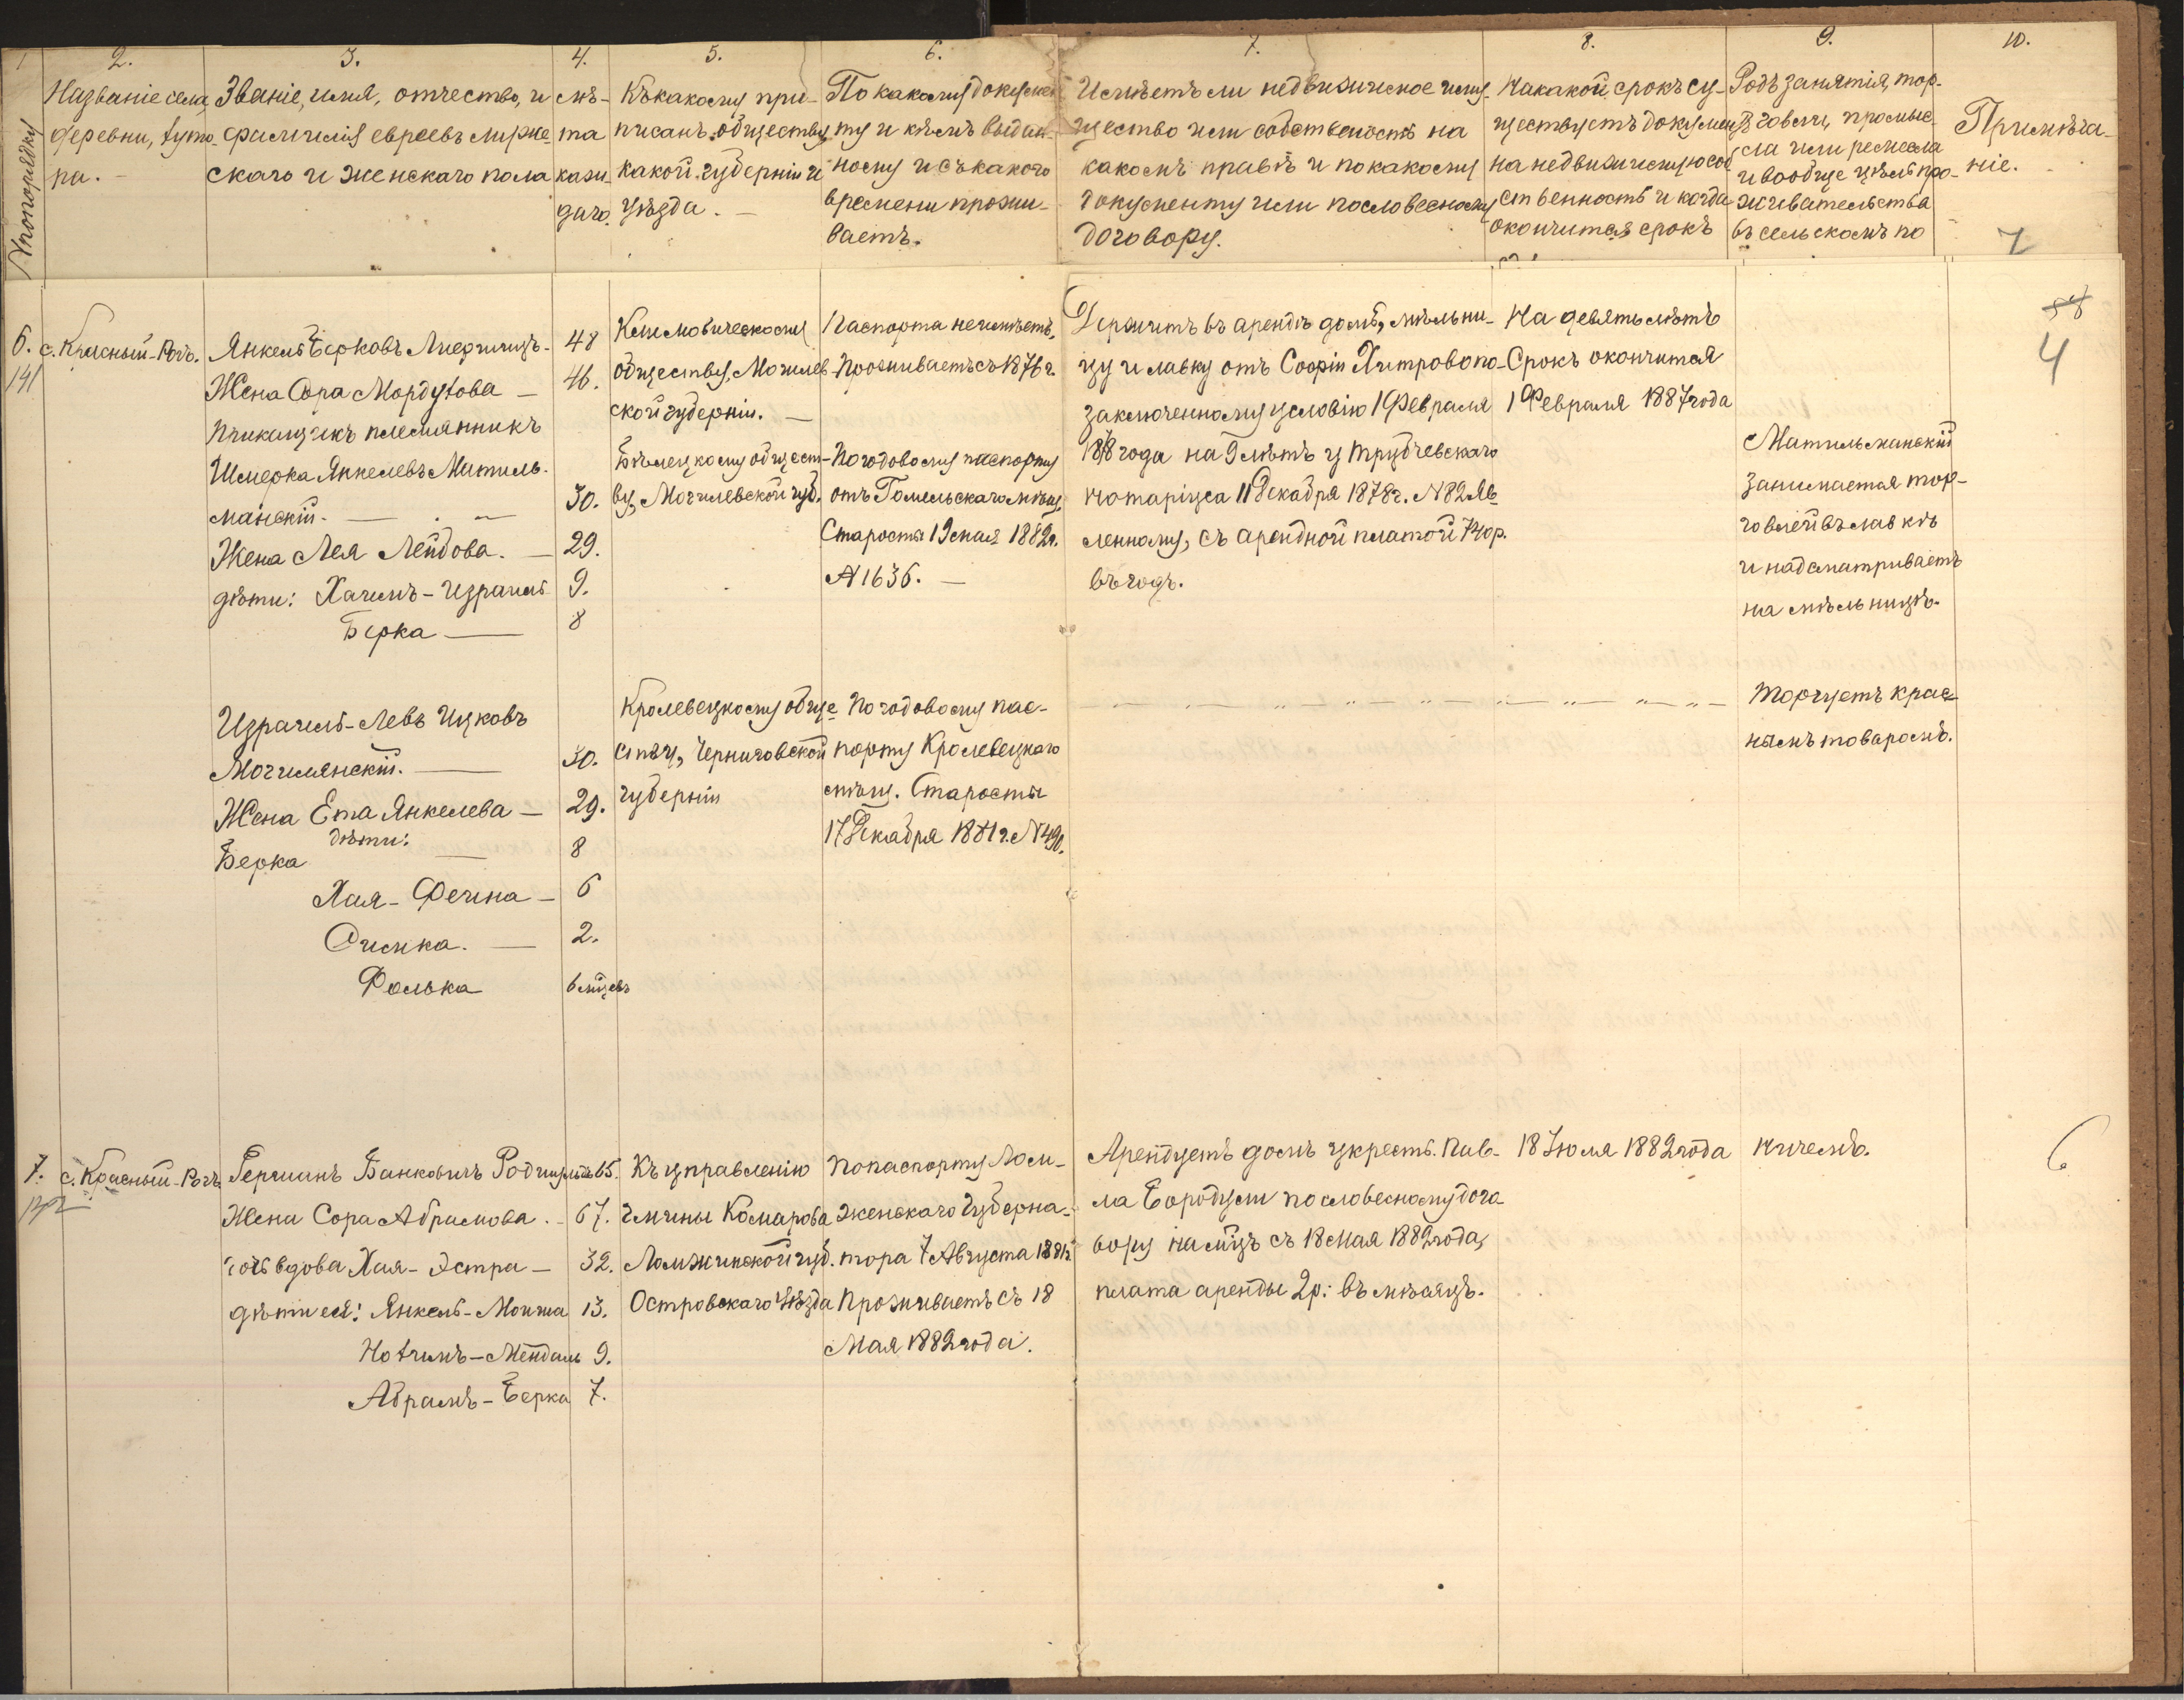 1 2. 3. 4. 5. 6. 7. 8. 9. 10.
№ по порядку
Названіе села,
деревни, хуто-
ра. -
Званіе, имя, отчество, и
фамилія евреевъ мужс-
скаго и женскаго пола
лѣ-
та
кажи-
даго.
Къ какому при-
писанъ обществу,
какой губерніи и
уѣзда. -
По какому докумен-
ту и кѣмъ выдан-
ному и съ какого
времени прожи-
ваетъ.
Имѣетъ ли недвижимое иму-
щество или собственность на
какомъ правѣ и по какому
документу или по словесному
договору.
На какой срокъ су-
ществуетъ докумен.
на недвижимую соб
ственность и когда
окончится срокъ
Родъ занятія, тор-
говли, промыс-
сла или ремесла
и вообще цѣль про-
живательства
въ сельскомъ по
Примѣча-
ніе.
7
6. с. Красный-Рогъ.
141
Янкель Берковъ 48
Жена Сора Мордухова — 46.
Прикащикъ племянникъ
Шмерка Янкелевъ Матиль-
манскій. — 30.
Жена Лея Лейбова. — 29.
дѣти: Хаимъ-Израиль 9.
Берка — 8
Климовическому
обществу, Могилев
ской губерніи. —
Бѣлецкому общест-
ву, Могилевской губ.
Паспорта неимѣетъ,
Проживаетъ съ 1876 г.
По годовому паспорту
отъ Гомельскаго мѣщ.
Старосты 19 мая 1882г.
№ 1636. —
Держитъ въ арендѣ домъ, мѣльни-
цу и лавку отъ Софіи Хитрово по
заключенному условію 1 Февраля
1878 года на 9 лѣтъ у Трубчевскаго
нотаріуса 11 Декабря 1878 г. № 82 яв
ленному, съ арендной платой 740 р.
въ годъ.
На девять лѣтъ
Срокъ окончится
1 Февраля 1887 года
Матильманскій
занимается тор-
говлей въ лавкѣ
и надсматриваетъ
на мѣльницѣ.
4
Израиль-Левъ Ицковъ
Могилянскій. — 30.
Жена Ета Янкелева — 29.
дѣти:
Берка — 8
Хая-Фейна — 6
Симка. — 2.
Фолька 6 мѣцевъ
Кролевецкому обще
ству, Черниговской
губерніи
По годовому пас-
порту Кролевецкаго
мѣщ. Старосты
17 Декабря 1881 г. № 490.
Торгуетъ крас-
нымъ товаромъ.
7. с. Красный-Рогъ
142
Гершанъ Банковичъ 65.
Жена Сора Абрамова. - 67.
дочь вдова Хая-Эстра — 32.
дѣти ея: Янкель-Мошка 13.
Нохимъ-Мендель 9.
Абрамъ-Берка 7.
Къ управленію
гмины Комарова
Ломжинской губ.
Островскаго уѣзда
По паспорту Лом-
женскаго Губерна-
тора 7 Августа 1881г.
Проживаетъ съ 18
Мая 1882 года.
Арендуетъ домъ у крест. Пав-
ла Бородули по словесному дого
вору на мѣцъ съ 18 мая 1882 года,
плата аренды 2р: въ мѣсяцъ.
18 Іюля 1882 года
Ничемъ.
6